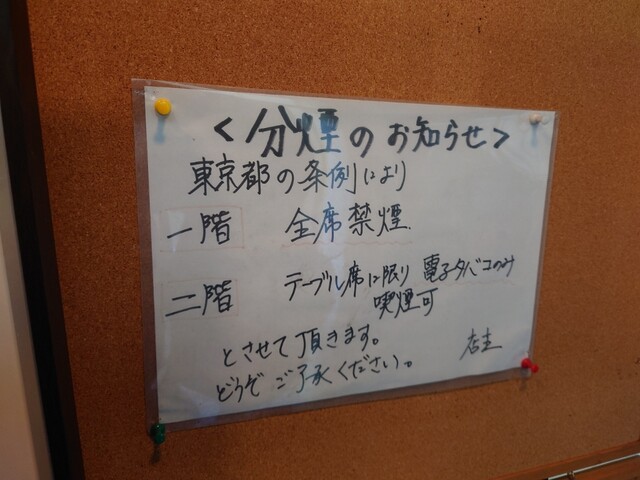 <分煙のお知らせ>
東京都の条例により
一階 全席禁煙.
二階 テーブル席に限り 電子タバコのみ
喫煙可
とさせて頂きます。
どうぞ ご了承ください。
店主